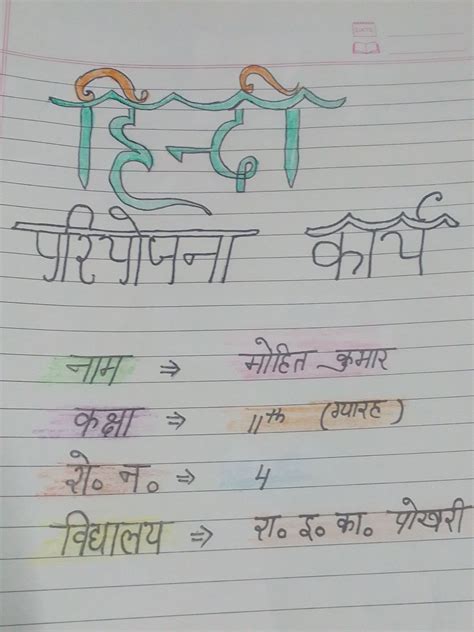 DATE
हिन्दी
परियोजना कार्य
नाम ⇒ मोहित कुमार
कक्षा ⇒ 11th (ग्यारह)
रो० न० ⇒ 4
विद्यालय ⇒ रा० इ० का० पोखरी